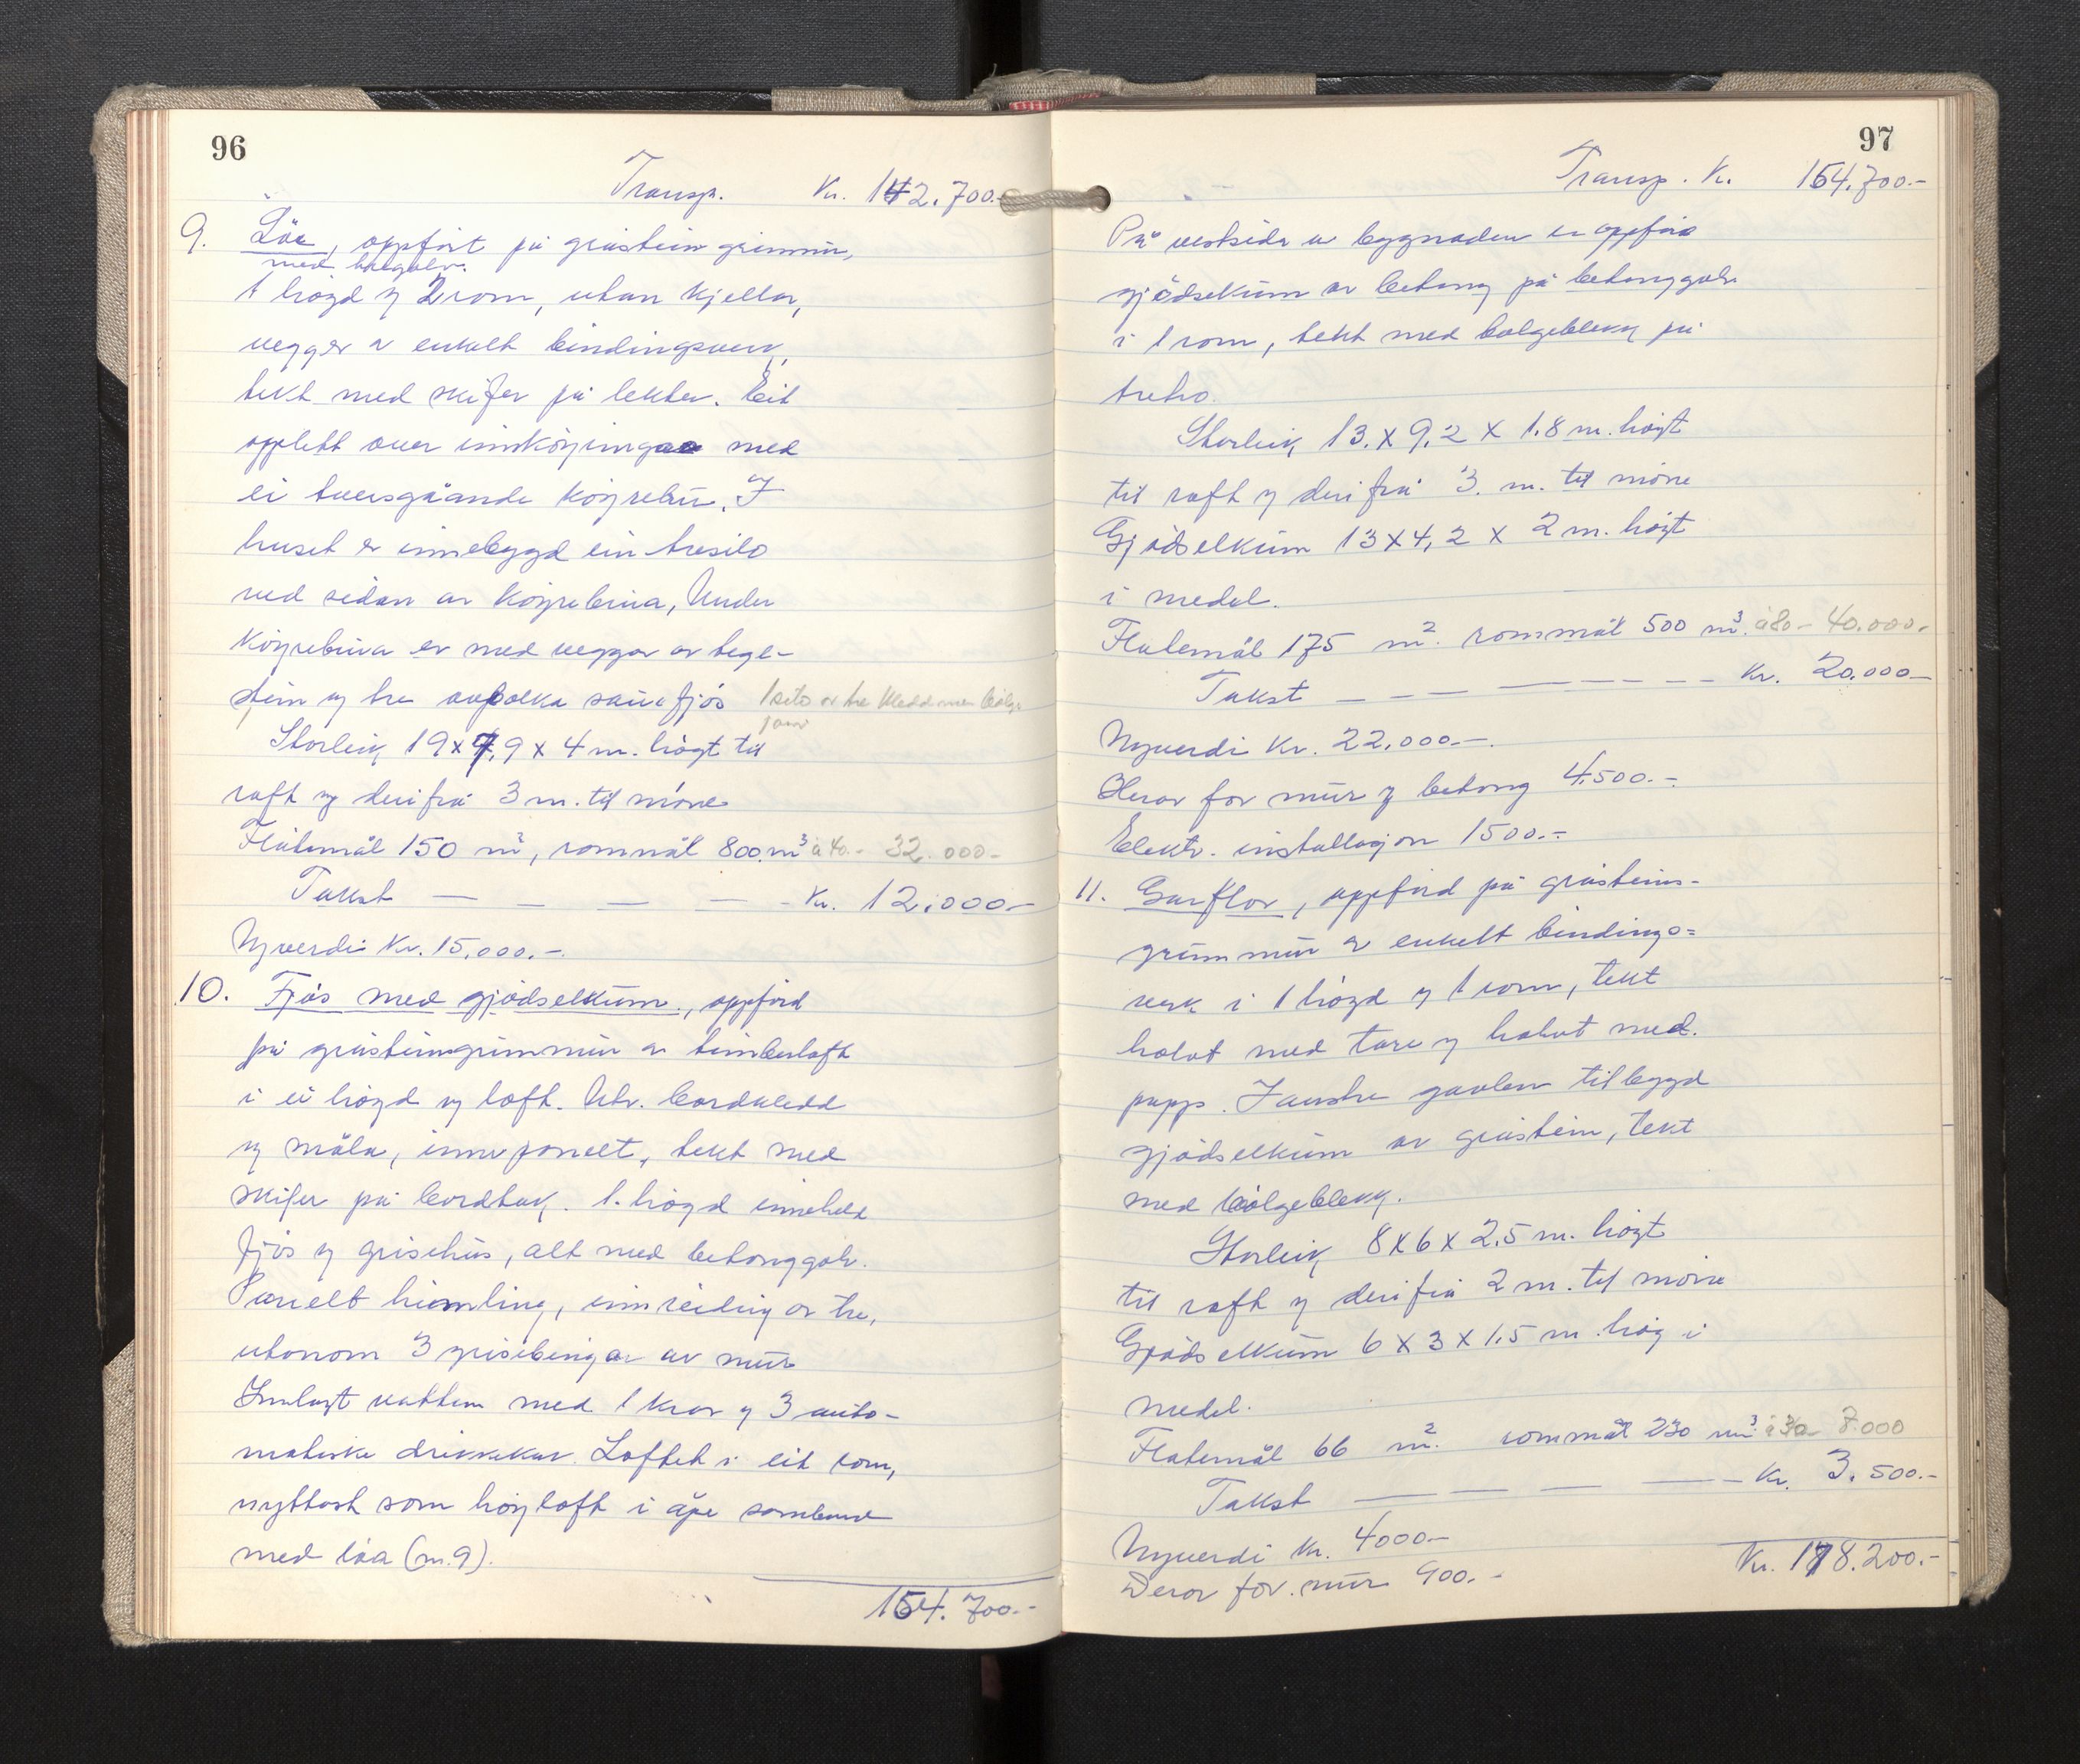 96
Transp. Kr. 142.700.-
9. Löe, oppført på gråstein grunnmur,
med tregolv.
1 høgd og 2 rom, utan kjellar,
vegger av enkelt bindingsverk,
tekt med skifer på lekter. Eit
opplett over innkøyringa med
ei tversgåande køyrebru. I
huset er innebygd ein tresilo
ved sidan av køyrebrua, Under
køyrebrua er med veggar av tegl-
stein og tre avbolka sauefjös 1 silo av tre kledd med bølge
jarn
Storleik 19 x 7,9 x 4 m. högt til
raft og derifrå 3 m. til möne
Flatemål 150 m², rommål 800 m³ à 40.- 32.000-
Takst — — — — Kr. 12.000-
Nyverdi Kr. 15.000.-
10. Fjös med gjödselkum, oppförd
på gråsteingrunnmur av timberloft
i ei högd og loft. Utv. bordkledd
og måla, innv panelt, tekt med
skifer på bordtak. 1. högd inneheld
fjös og grisehus, alt med betonggolv.
Panelt himling, innreiing av tre,
utanom 3 grisebingar av mur
Innlagt vatten med 1 kran og 3 auto-
matiske drikkekar. Loftet i eit rom,
nyttast som höyloft i åpe samband
med löa (nr. 9).
154.700.-
97
Transp. Kr. 154.700.-
På vestsida av bygnaden er oppföra
gjödselkum av betong på betonggolv
i 1 rom, tekt med bølgeblekk på
tretro.
Storleik 13. x 9,2 x 1.8 m. högt
til raft og derifrå 3. m. til möne
Gjödselkum 13 x 4,2 x 2 m. högt
i medel.
Flatemål 175 m². rommål 500 m³. à 80- 40.000.-
Takst — — — — — Kr. 20.000—
Nyverdi Kr. 22.000.-
Herav for mur og betong 4.500.-
Elektr. installasjon 1500.-
11. Garflor, oppförd på gråsteins-
grunnmur av enkelt bindings=
verk i 1 högd og 1 rom, tekt
halvt med tare og halvt med.
papp. I austre gavlen tilbygd
gjödselkum av gråstein, tekt
med bölgeblekk.
Storleik 8 x 6 x 2.5 m. högt
til raft og derifrå 2 m. til möne
Gjödselkum 6 x 3 x 1.5 m. hög i
medel.
Flatemål 66 m². rommål 230 m³ à 30 7.000
Takst — — — — Kr. 3.500.-
Nyverdi Kr. 4000.-
Derav for. mur 900.-
Kr. 178.200.-